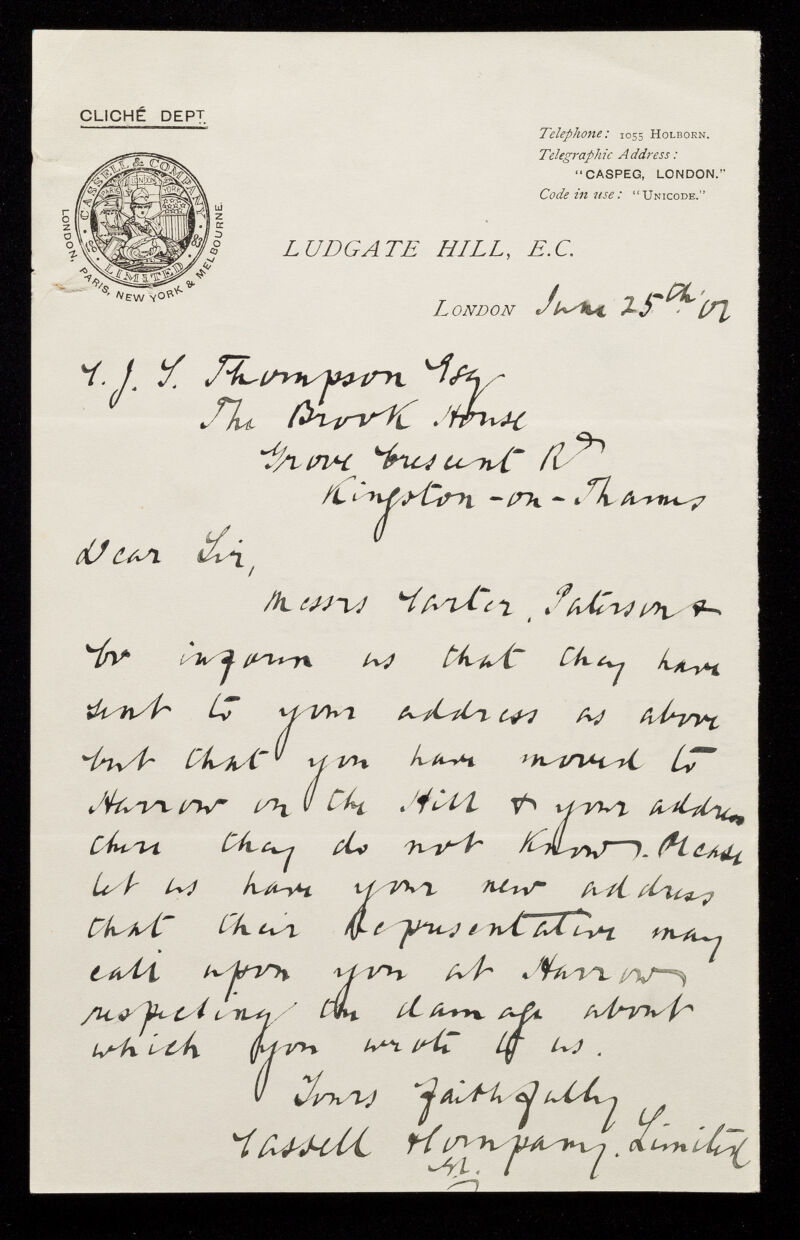 CLICHÉ DEPT.
Telephone: 1055 HOLBORN.
Telegraphic Address:
"CASPEG, LONDON."
Code in use: "UNICODE."
CASSELL & COMPANY
LIMITED
LONDON, PARIS, NEW YORK & MELBOURNE.
LUDGATE HILL, E.C.
LONDON June 25th 07
C. J. S. Thompson Esq
The Brook House
Grove Crescent Rd
Kingston-on-Thames
Dear Sir,
Messrs Carter, Paterson &
Co inform us that they have
sent to your address as above
but that you have moved to
Harrow on the Hill & your address
there they do not know. Please
let us have your new address
that their Representative may
call upon you at Harrow
respecting the damage about
which you wrote to us.
Yours faithfully
Cassell & Company. Limited